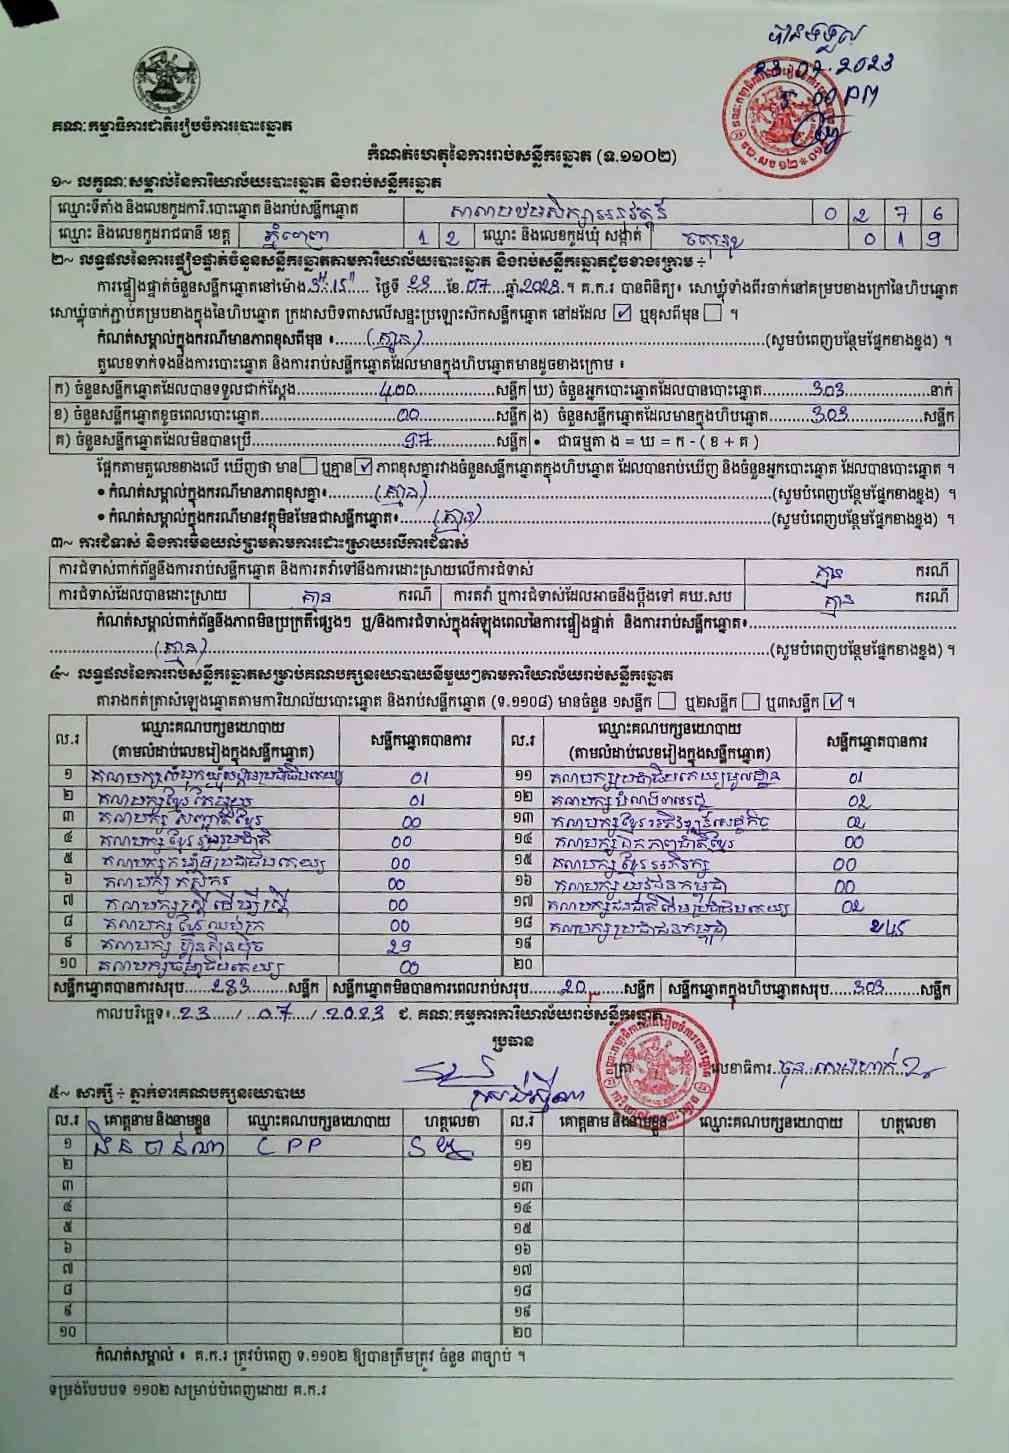 បានទទួល
23.07.2023
5 00 PM
គណៈកម្មាធិការជាតិរៀបចំការបោះឆ្នោត
កំណត់ហេតុនៃការរាប់សន្លឹកឆ្នោត (ទ.១១០២)
១~ លក្ខណៈសម្គាល់នៃការិយាល័យបោះឆ្នោត និងរាប់សន្លឹកឆ្នោត
ឈ្មោះទីតាំង និងលេខកូដការិ.បោះឆ្នោត និងរាប់សន្លឹកឆ្នោត សាលាបឋមសិក្សាអនុវត្តន៍ 0 2 7 6
ឈ្មោះ និងលេខកូដរាជធានី ខេត្ត ភ្នំពេញ 1 2 ឈ្មោះ និងលេខកូដឃុំ សង្កាត់ ចតុមុខ 0 1 9
២~ លទ្ធផលនៃការផ្ទៀងផ្ទាត់ចំនួនសន្លឹកឆ្នោតតាមការិយាល័យបោះឆ្នោត និងរាប់សន្លឹកឆ្នោតដូចខាងក្រោម ÷
ការផ្ទៀងផ្ទាត់ចំនួនសន្លឹកឆ្នោតនៅម៉ោង 3" 15" ថ្ងៃទី 23 ខែ 07 ឆ្នាំ 2023 ។ គ.ក.រ បានពិនិត្យ៖ សោឃ្លុំទាំងពីរចាក់នៅគម្របខាងក្រៅនៃហិបឆ្នោត
សោឃ្លុំចាក់ភ្ជាប់គម្របខាងក្នុងនៃហិបឆ្នោត ក្រដាសបិទពាសលើសន្ទះប្រឡោះស៊កសន្លឹកឆ្នោត នៅដដែល ☑ ឬខុសពីមុន ☐ ។
កំណត់សម្គាល់ក្នុងករណីមានភាពខុសពីមុន ៖ (គ្មាន) (សូមបំពេញបន្ថែមផ្នែកខាងខ្នង) ។
តួលេខទាក់ទងនឹងការបោះឆ្នោត និងការរាប់សន្លឹកឆ្នោតដែលមានក្នុងហិបឆ្នោតមានដូចខាងក្រោម ៖
ក) ចំនួនសន្លឹកឆ្នោតដែលបានទទួលជាក់ស្ដែង 400 សន្លឹក ឃ) ចំនួនអ្នកបោះឆ្នោតដែលបានបោះឆ្នោត 303 នាក់
ខ) ចំនួនសន្លឹកឆ្នោតខូចពេលបោះឆ្នោត 00 សន្លឹក ង) ចំនួនសន្លឹកឆ្នោតដែលមានក្នុងហិបឆ្នោត 303 សន្លឹក
គ) ចំនួនសន្លឹកឆ្នោតដែលមិនបានប្រើ 97 សន្លឹក • ជាធម្មតា ង = ឃ = ក - ( ខ + គ )
ផ្អែកតាមតួលេខខាងលើ ឃើញថា មាន ☐ ឬគ្មាន ☑ ភាពខុសគ្នារវាងចំនួនសន្លឹកឆ្នោតក្នុងហិបឆ្នោត ដែលបានរាប់ឃើញ និងចំនួនអ្នកបោះឆ្នោត ដែលបានបោះឆ្នោត ។
• កំណត់សម្គាល់ក្នុងករណីមានភាពខុសគ្នា៖ (គ្មាន) (សូមបំពេញបន្ថែមផ្នែកខាងខ្នង) ។
• កំណត់សម្គាល់ក្នុងករណីមានវត្ថុមិនមែនជាសន្លឹកឆ្នោត៖ (គ្មាន) (សូមបំពេញបន្ថែមផ្នែកខាងខ្នង) ។
៣~ ការជំទាស់ និងការមិនយល់ព្រមតាមការដោះស្រាយលើការជំទាស់
ការជំទាស់ពាក់ព័ន្ធនឹងការរាប់សន្លឹកឆ្នោត និងការតវ៉ាទៅនឹងការដោះស្រាយលើការជំទាស់ គ្មាន ករណី
ការជំទាស់ដែលបានដោះស្រាយ គ្មាន ករណី ការតវ៉ា ឬការជំទាស់ដែលអាចនឹងប្ដឹងទៅ គឃ.សប គ្មាន ករណី
កំណត់សម្គាល់ពាក់ព័ន្ធនឹងភាពមិនប្រក្រតីផ្សេងៗ ឬ/និងការជំទាស់ក្នុងអំឡុងពេលនៃការផ្ទៀងផ្ទាត់ និងការរាប់សន្លឹកឆ្នោត៖
(គ្មាន) (សូមបំពេញបន្ថែមផ្នែកខាងខ្នង) ។
៤~ លទ្ធផលនៃការរាប់សន្លឹកឆ្នោតសម្រាប់គណបក្សនយោបាយនីមួយៗតាមការិយាល័យរាប់សន្លឹកឆ្នោត
តារាងកត់ត្រាសំឡេងឆ្នោតតាមការិយាល័យបោះឆ្នោត និងរាប់សន្លឹកឆ្នោត (ទ.១១០៨) មានចំនួន ១សន្លឹក ☐ ឬ២សន្លឹក ☐ ឬ៣សន្លឹក ☑ ។
ល.រ ឈ្មោះគណបក្សនយោបាយ (តាមលំដាប់លេខរៀងក្នុងសន្លឹកឆ្នោត) សន្លឹកឆ្នោតបានការ ល.រ ឈ្មោះគណបក្សនយោបាយ (តាមលំដាប់លេខរៀងក្នុងសន្លឹកឆ្នោត) សន្លឹកឆ្នោតបានការ
១ គណបក្សសំបុកឃ្មុំសង្គមប្រជាធិបតេយ្យ 01 ១១ គណបក្សប្រជាធិបតេយ្យមូលដ្ឋាន 01
២ គណបក្សខ្មែរតែមួយ 01 ១២ គណបក្សបំណងពលរដ្ឋ 02
៣ គណបក្សសញ្ជាតិខ្មែរ 00 ១៣ គណបក្សខ្មែរអភិវឌ្ឍន៍សេដ្ឋកិច្ច 02
៤ គណបក្សខ្មែររួបរួមជាតិ 00 ១៤ គណបក្សឯកភាពជាតិខ្មែរ 00
៥ គណបក្សកម្លាំងប្រជាធិបតេយ្យ 00 ១៥ គណបក្សខ្មែរអភិរក្ស 00
៦ គណបក្សកសិករ 00 ១៦ គណបក្សយុវជនកម្ពុជា 00
៧ គណបក្សស្ត្រីដើម្បីស្ត្រី 00 ១៧ គណបក្សជនជាតិដើមប្រជាធិបតេយ្យ 02
៨ គណបក្សខ្មែរឈប់ក្រ 00 ១៨ គណបក្សប្រជាជនកម្ពុជា 245
៩ គណបក្សហ៊្វុនស៊ិនប៉ិច 29 ១៩
១០ គណបក្សធម្មាធិបតេយ្យ 00 ២០
សន្លឹកឆ្នោតបានការសរុប 283 សន្លឹក សន្លឹកឆ្នោតមិនបានការពេលរាប់សរុប 20 សន្លឹក សន្លឹកឆ្នោតក្នុងហិបឆ្នោតសរុប 303 សន្លឹក
កាលបរិច្ឆេទ៖ 23 / 07 / 2023 ជ. គណៈកម្មការការិយាល័យរាប់សន្លឹកឆ្នោត
ប្រធាន
ត្រា លេខាធិការ
៥~ សាក្សី ÷ ភ្នាក់ងារគណបក្សនយោបាយ
ល.រ គោត្តនាម និងនាមខ្លួន ឈ្មោះគណបក្សនយោបាយ ហត្ថលេខា ល.រ គោត្តនាម និងនាមខ្លួន ឈ្មោះគណបក្សនយោបាយ ហត្ថលេខា
១ CPP ១១
២ ១២
៣ ១៣
៤ ១៤
៥ ១៥
៦ ១៦
៧ ១៧
៨ ១៨
៩ ១៩
១០ ២០
កំណត់សម្គាល់ ៖ គ.ក.រ ត្រូវបំពេញ ទ.១១០២ ឱ្យបានត្រឹមត្រូវ ចំនួន ៣ច្បាប់ ។
ទម្រង់បែបបទ ១១០២ សម្រាប់បំពេញដោយ គ.ក.រ